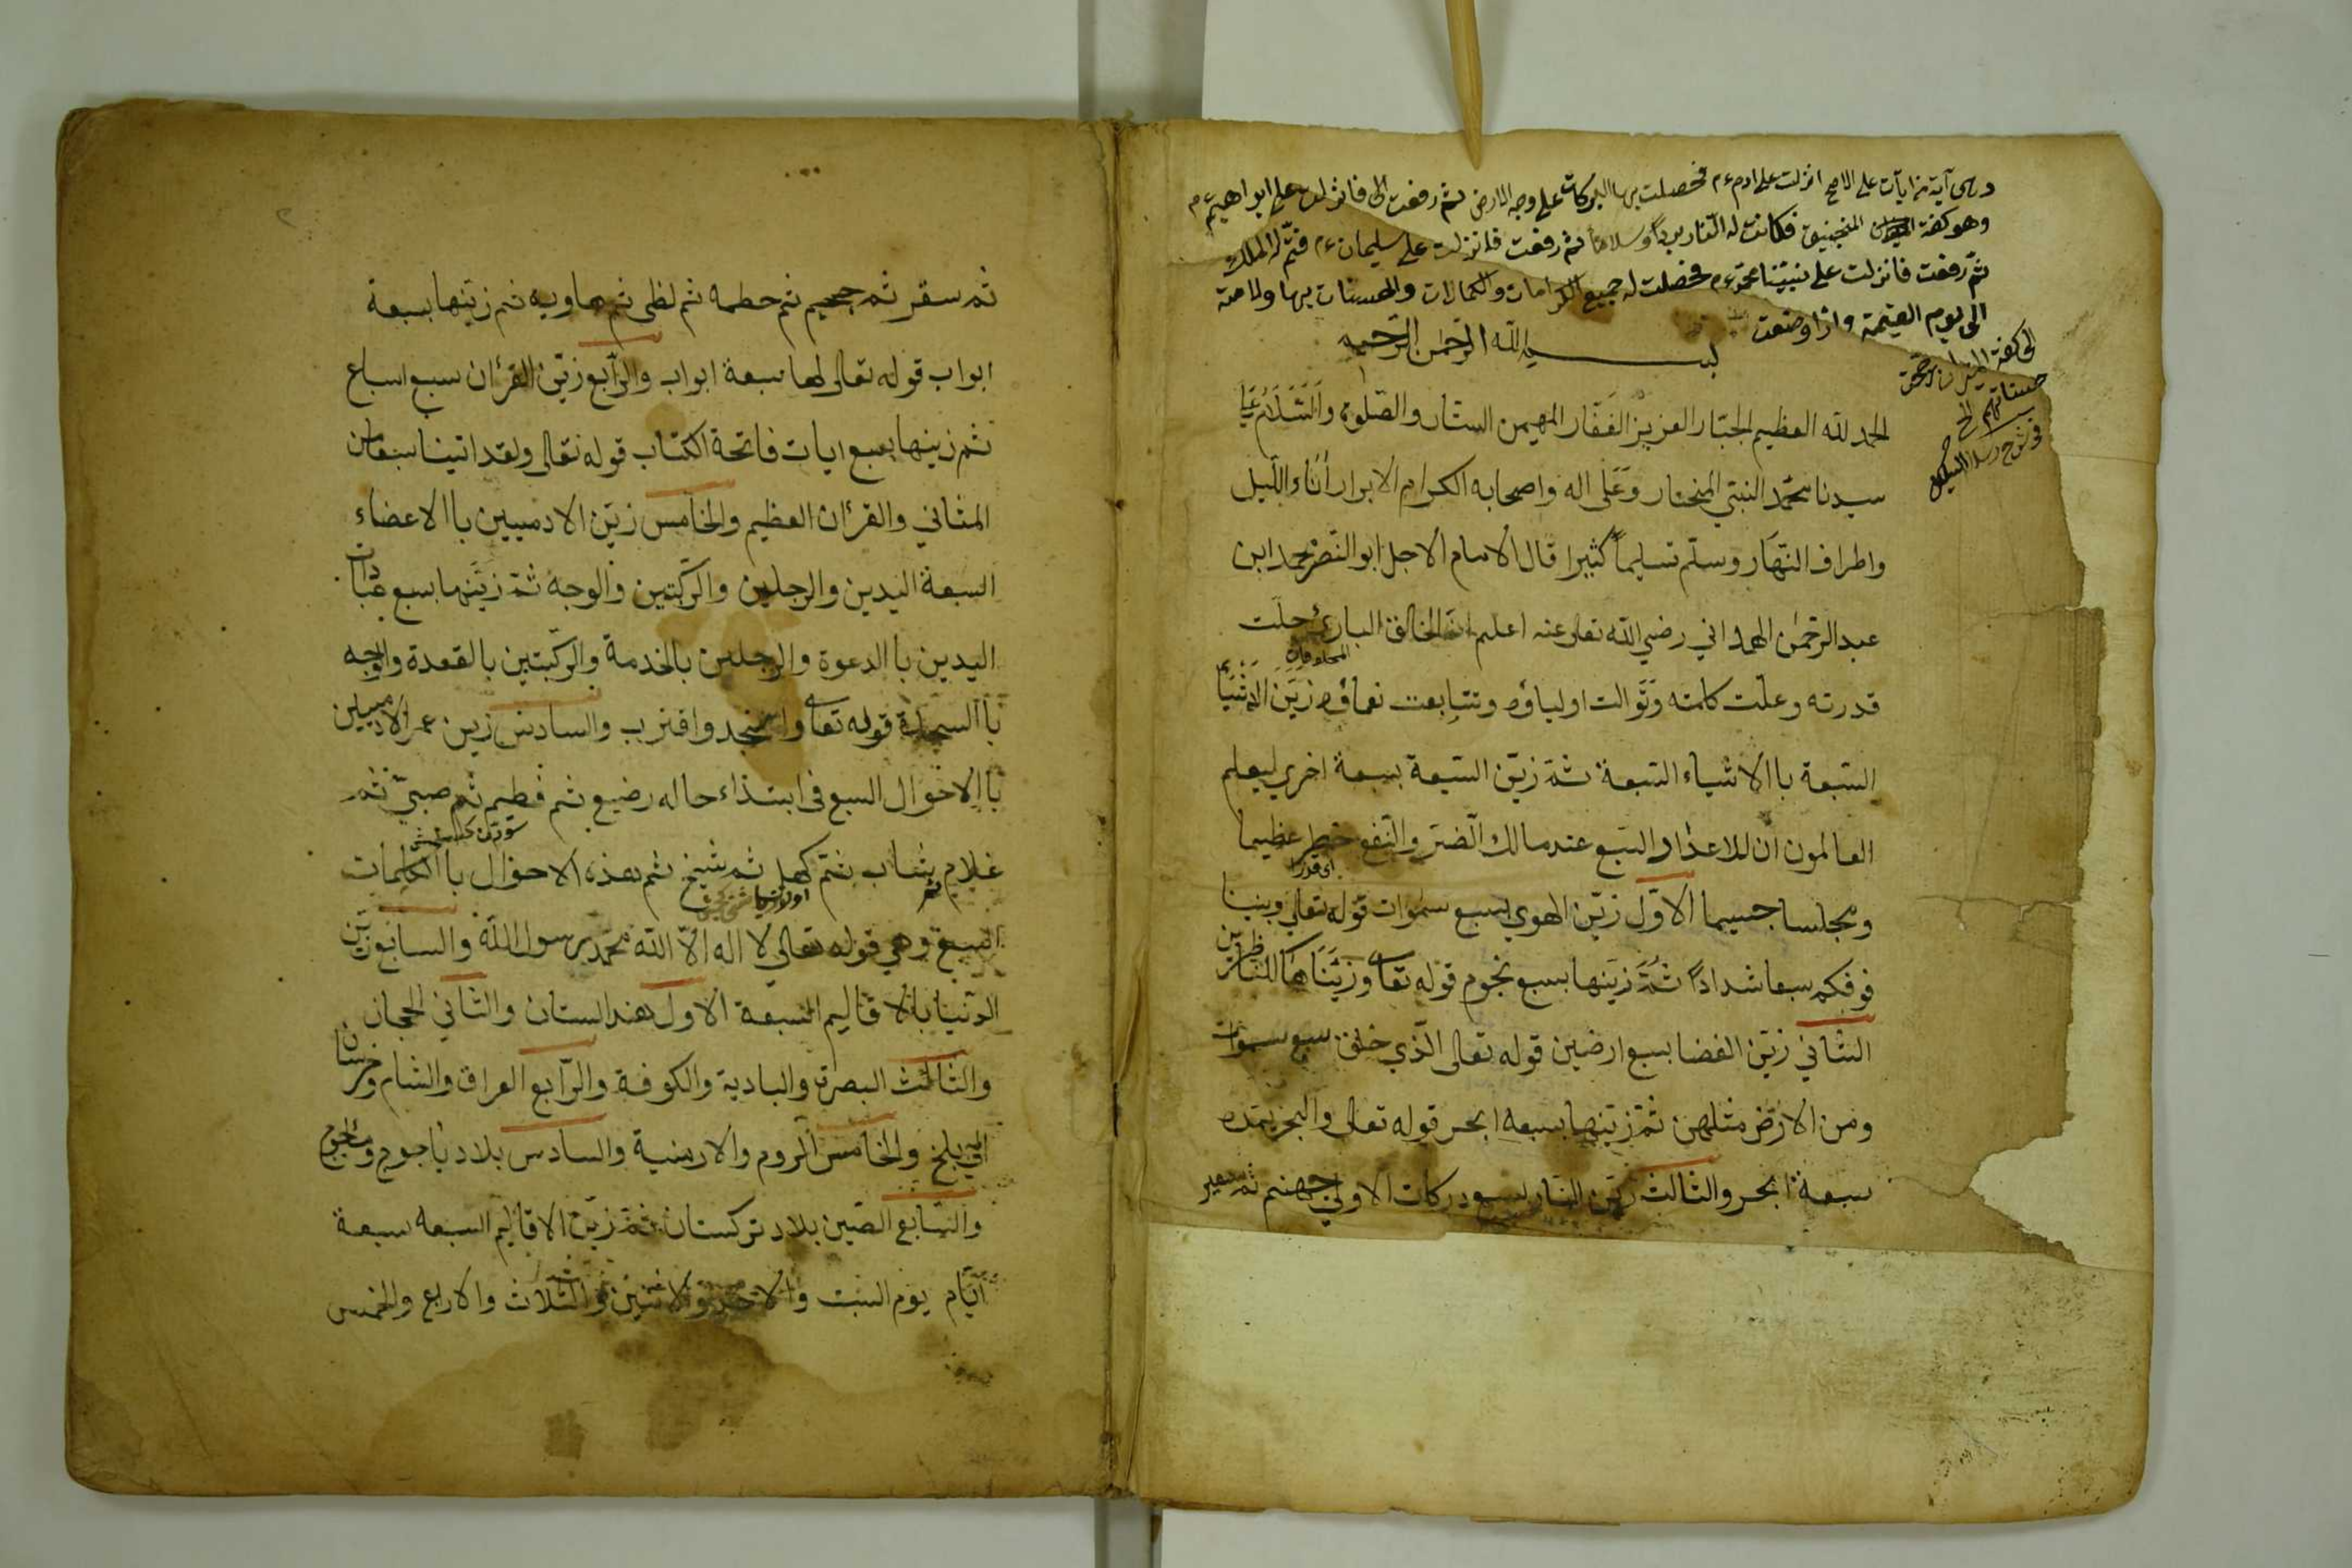 وهي آية من ايآت على الاصح انزلت على ادم ءم فحصلت بها البركات على وجه الارض ثم رفعت الى فانزلت على ابراهيم ءم
وهو كفة المنجنيق فكانت له النار بردًا وسلامًا ثم رفعت فانزلت على سليمان ءم فتم له الملك
ثم رفعت فانزلت على نبيّنا محمد ءم فحصلت له جميع الكرامات والكمالات والحسنات بها ولامته
الى يوم القيمة واذا وضعت
الى كفة الميزان رجحت
حسناتهم الخ
في شرح
بسم الله الرحمن الرحيم
الحمد لله العظيم الجبّار العزيز الغفّار المهيمن الستار والصّلوة والسّلام على
سيدنا محمّد النبيّ المختار وعَلى اله واصحابه الكرام الابرار أناء اللّيل
واطراف النّهَار وسلّم تسليماً كثيرا قال الامام الاجل ابو النّصر محمد ابن
عبد الرّحمٰن الهمداني رضي الله تعالى عنه اعلم انّ الخالق البارئ جلّت
المخلوقات
قدرته وعلّت كلمته وتَوالت اولياؤه وتتابعت نعماؤه زيّن الاشيَاء
السّبعة باالاشياء السّبعة ثمّ زيّن السّبعة بسبعة اخري ليعلم
العالمون ان للاعداد السّبع عند مالك الضّر والنّفع خطر عظيما
اى قدرا
ومجلسا جسيما الاوّل زيّن الهوي بسبع سموات قوله تعالي وبنينا
فوقكم سبعا شدادًا ثمّ زيّنها بسبع نجوم قوله تعا وزيّنّاها للنّاظرين
الثّاني زيّن الفضا بسبع ارضين قوله تعالى الّذي خلق سبع سموات
ومن الارض مثلهن ثمّ زيّنها بسبعه ابحر قوله تعالى والبحر يمده
سبعة ابحر والثالث زيّن النّار بسبع دركات الاولي جهنم ثم سعير
ثم سقر ثم جحيم ثم حطمه ثم لظى ثم هاويه ثم زيّنها بسبعة
ابواب قوله تعالى لها سبعة ابواب والرّابع زيّن القرأن سبع اسباع
ثم زينها بسبع ايات فاتحة الكتاب قوله تعالى ولقد اتينا سبعا من
المثاني والقرأن العظيم والخامس زيّن الادميين باالاعضاء
السبعة اليدين والرجلين والركبتين والوجه ثمّ زيّنها بسبع عبادات
اليدين باالدعوة والرجلين بالخدمة والرّكبتين بالقعدة والوجه
باالسجدة قوله تعا واسجد واقترب والسادس زين عمر الادميين
باالاحوال السبع في ابتداء حاله رضيع ثم فطيم ثم صبيّ ثم
غلام ثم شاب ثمّ كهل ثم شيخ ثم هذه الاحوال باالكلمات
السبع وهي قوله تعالي لا اله الاّ الله محمّد رسول الله والسابع زيّن
الدّنيا باالاقاليم السبعة الاول هندالستان والثاني الحجاز
والثالث البصرة والبادية والكوفة والرّابع العراق والشام وخرسان
الي بلخ والخامس الروم والارمنية والسادس بلاد ياجوج ومأجوج
والسّابع الصّين بلاد تركستان ثمّ زيّن الاقاليم السبعه سبعة
ايّام يوم السّبت والاحد والاثنين والثلاث والاربع والخمس